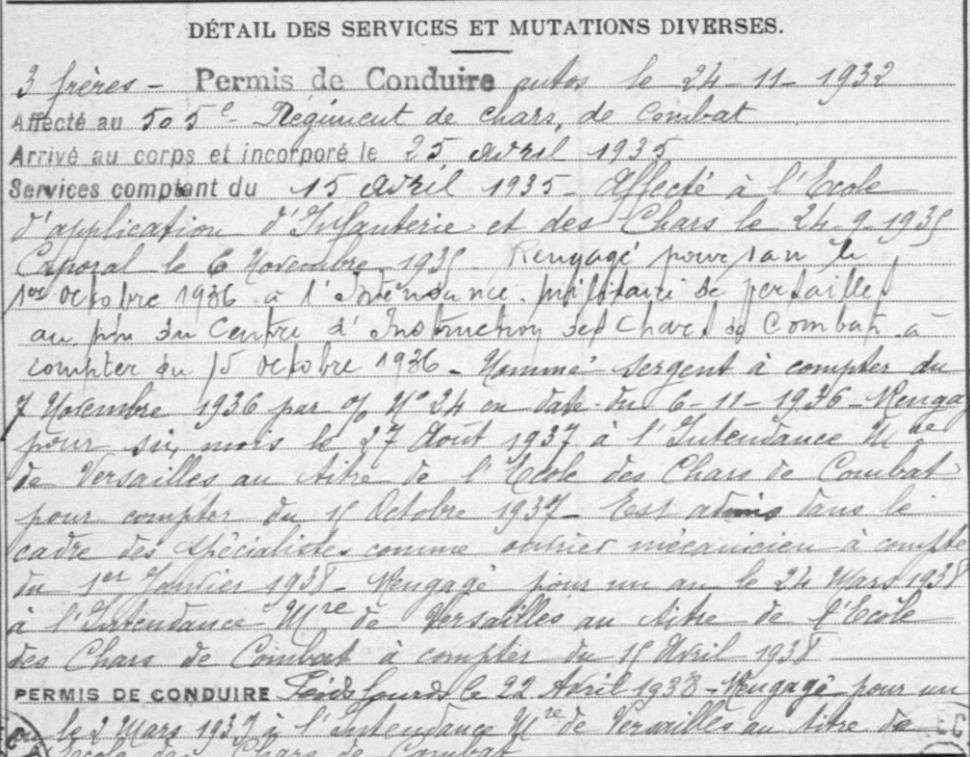 DÉTAIL DES SERVICES ET MUTATIONS DIVERSES.
3 frères - Permis de Conduire autos le 24-11-1932
Affecté au 505e Régiment de chars de combat
Arrivé au corps et incorporé le 25 avril 1935
Services comptant du 15 avril 1935 - Affecté à l'Ecole
d'application d'Infanterie et des Chars le 24-9-1935
Caporal le 6 Novembre 1935 - Rengagé pour 1 an le
1er octobre 1936 à l'Intendance militaire de Versailles
au du Centre d'Instruction des Chars de Combat à
compter du 15 octobre 1936 - Nommé sergent à compter du
7 Novembre 1936 par N° 24 en date du 6-11-1936 - Rengagé
pour six mois le 27 Août 1937 à l'Intendance Mre
de Versailles au titre de l'Ecole des Chars de Combat
pour compter du 15 Octobre 1937 - Est admis dans le
cadre des spécialistes comme ouvrier mécanicien à compter
du 1er Janvier 1938 - Rengagé pour un an le 24 Mars 1938
à l'Intendance Mre de Versailles au titre de l'Ecole
des Chars de Combat à compter du 15 Avril 1938
PERMIS DE CONDUIRE Poids lourds le 22 Avril 1938 - Rengagé pour un
le 2 Mars à l'Intendance Mre de Versailles au titre de
Ecole des Chars de Combat